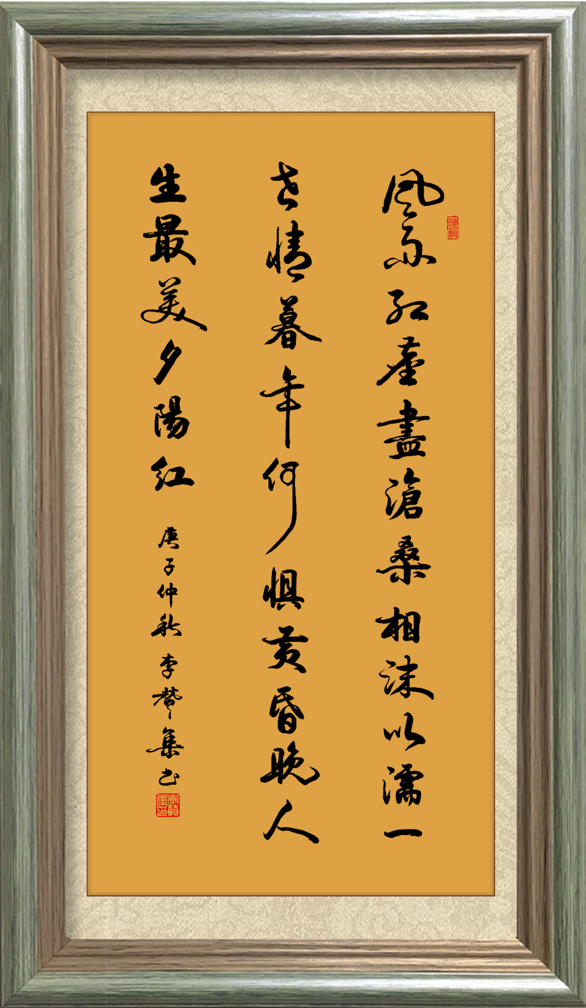 風雨紅塵盡滄桑相沫以濡一
世情暮年何惧黄昏晚人
生最美夕陽紅
庚子仲秋李集书